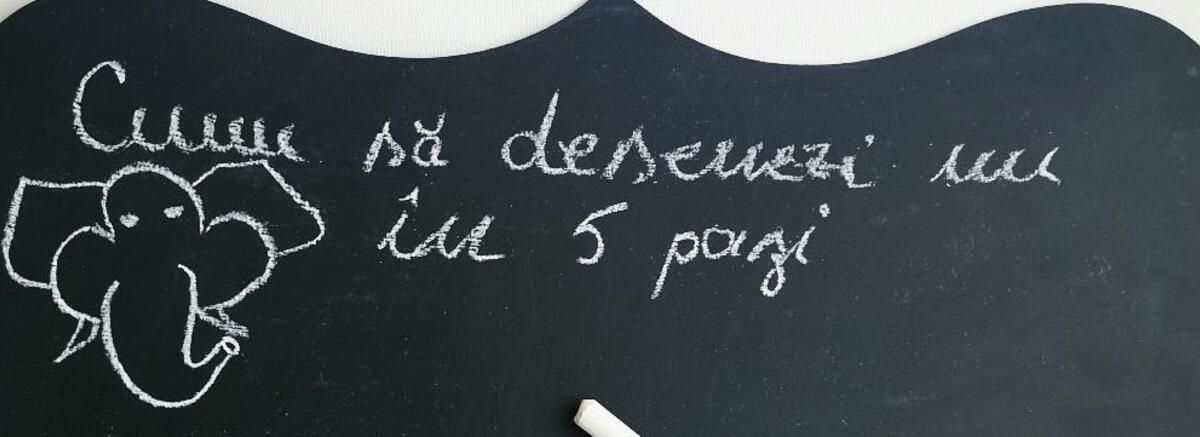 Cum să desenezi un
în 5 pași